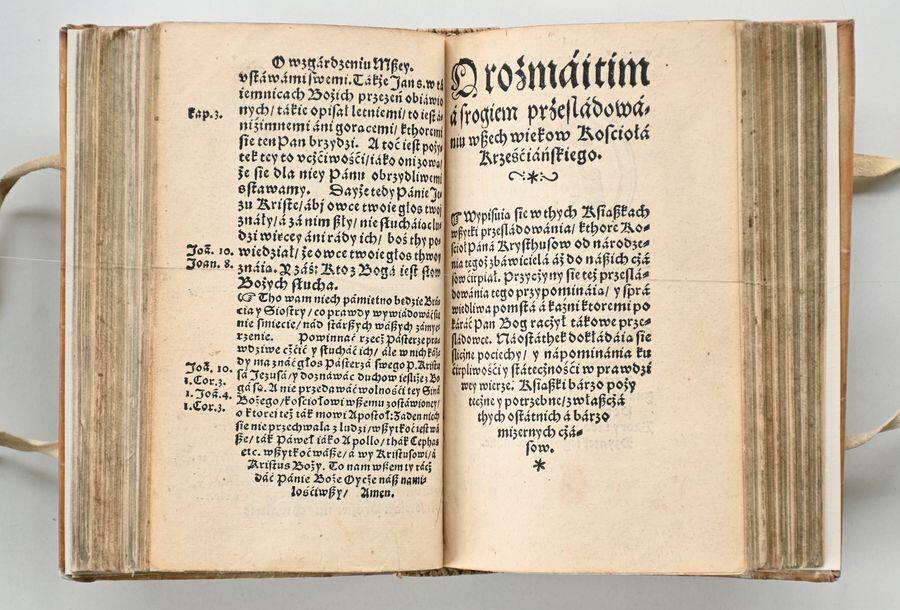 O wzgárdzeniu Mßey.
vſtáwámi ſwemi. Tákże Jan s. w tá
kap. 3.
iemnicach Bożich przezeń obiáwio
nych/ tákie opiſał letniemi/ to ieſt á-
ni źimnemi áni goracemi/ kthoremi
ſie ten Pan brzydzi. A toć ieſt poży-
tek tey to vcżćiwośći/ iáko onizowá/
że ſie dla niey Pánu obrzydliwemi
sſtawamy. Dayże tedy Pánie Je-
zu Kriſte/ ábj owce twoie głos twoj
znály/ á zá nim ßły/ nie ſłucháiac lu-
dzi wiecey áni rády ich/ boś thy po-
Joã. 10.
wiedźiał/ że owce twoie głos thwoy
Joan. 8.
znáia. Y záś: Kto z Bogá ieſt ſłow
Bożych ſłucha.
☞ Tho wam niech pámietno bedzie Brá-
cia y Sioſtry/ co prawdy wywiádowáć ſie
nie śmiecie/ nád ſtárßych wáßych zámye-
rzenie. Powinnać rzecż Páſterze prá-
wdziwe cżćić y ſłucháć ich/ ale w nich káż-
Joã. 10.
dy ma znáć głos Páſterzá ſwego P. Kriſtu
1. Cor. 3.
ſá Jezuſá/ y doznáwáć duchow ieſliże z Bo
1. Joã. 4.
gá są. A nie przedawáć wolnośći tey Siná
1. Cor. 3.
Bożego/ kośćiołowi wßemu zoſtáwioney/
o ktorei też ták mowi Apoſtoł: Żaden niech
ſie nie przechwala z ludzi/ wßytkoć ieſt wá
ße/ ták Páweł iáko Apollo/ thák Cephas
etc. wßytkoć wáße/ á wy Kriſtuſowi/ á
Kriſtus Boży. To nam wßem ty rácż
dáć Pánie Boże Oycże náß nami-
łośćiwßy/ Amen.
O rozmáitim
á ſrogiem prześládowá-
niu wßech wiekow Kośćiołá
Krześćiáńſkiego.
☞ Wypiſuia ſie w thych Kſiaßkach
wßytki prześládowánia/ kthore Ko-
śćioł Páná Kryſthuſow od národze-
nia tegoż zbáwicielá áż do náßich cżá
ſow ćirpiał. Przycżyny ſie też prześlá-
dowánia tego przypomináia/ y ſprá
wiedliwa pomſtá á kaźni ktoremi po
káráć Pan Bog racżył tákowe prze-
śládowce. Náoſtáthek dokładáia ſie
ſlicżne pociechy/ y nápominánia ku
ćirpliwośći y ſtátecżnośći w prawdzi
wey wierze. Kſiaßki bárzo poży
tecżne y potrzebne/ zwłaßcżá
thych oſtátnich á bárzo
mizernych cżá-
ſow.